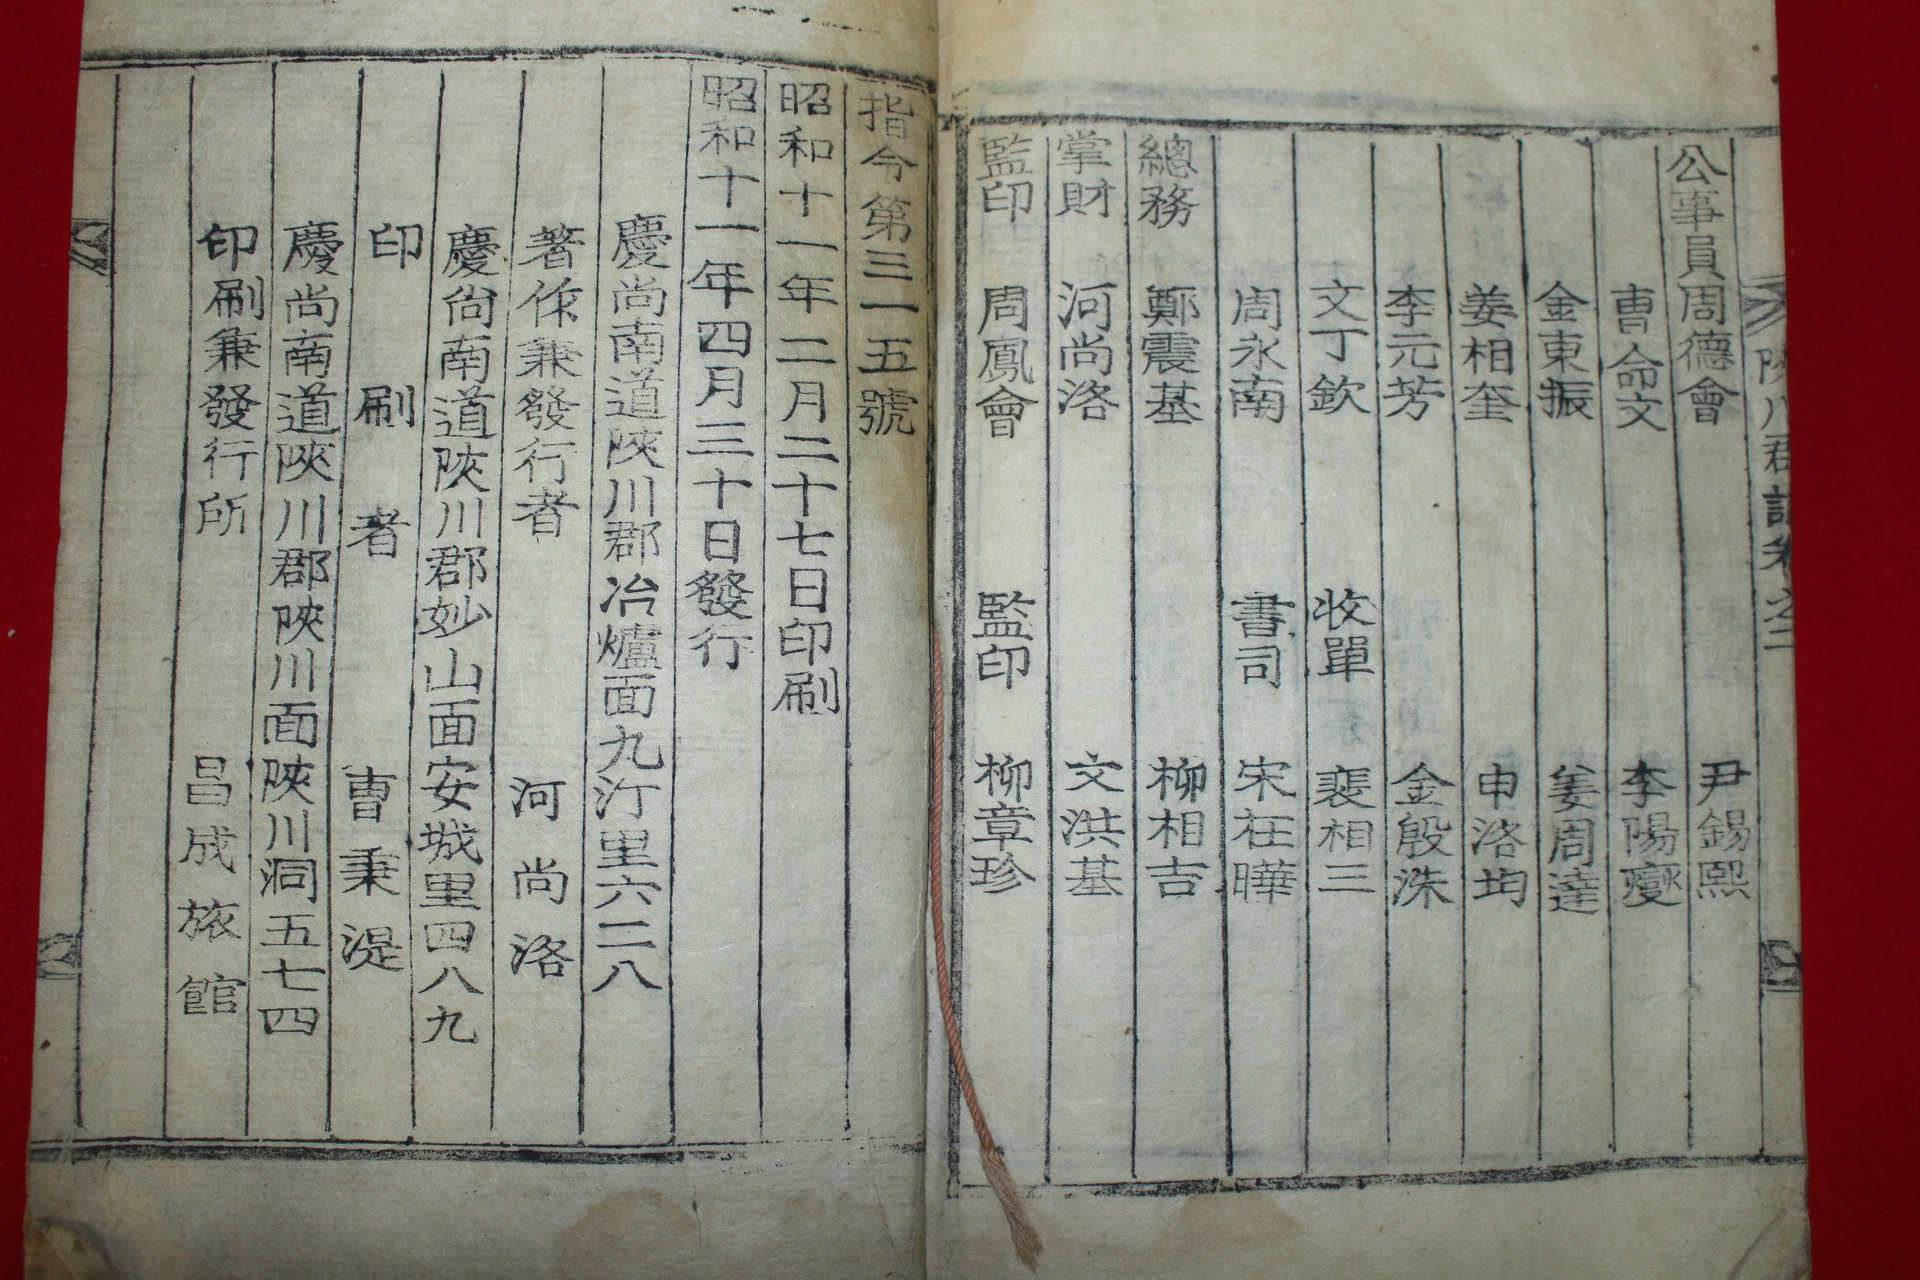 陜川郡誌卷之二
公事員 周德會 尹錫熙
曺命文 李陽燮
金東振 姜周達
姜相奎 申洛均
李元芳 金殷洙
文丁欽 收單 裵相三
周永南 書司 宋在曄
總務 鄭震基 柳相吉
掌財 河尚洛 文洪基
監印 周鳳會 監印 柳章珍
指令第三一五號
昭和十一年二月二十七日印刷
昭和十一年四月三十日發行
慶尚南道陜川郡冶爐面九汀里六二八
著作兼發行者 河尚洛
慶尚南道陜川郡妙山面安城里四八九
印刷者 曺秉湜
慶尚南道陜川郡陜川面陜川洞五七四
印刷兼發行所 昌成旅館